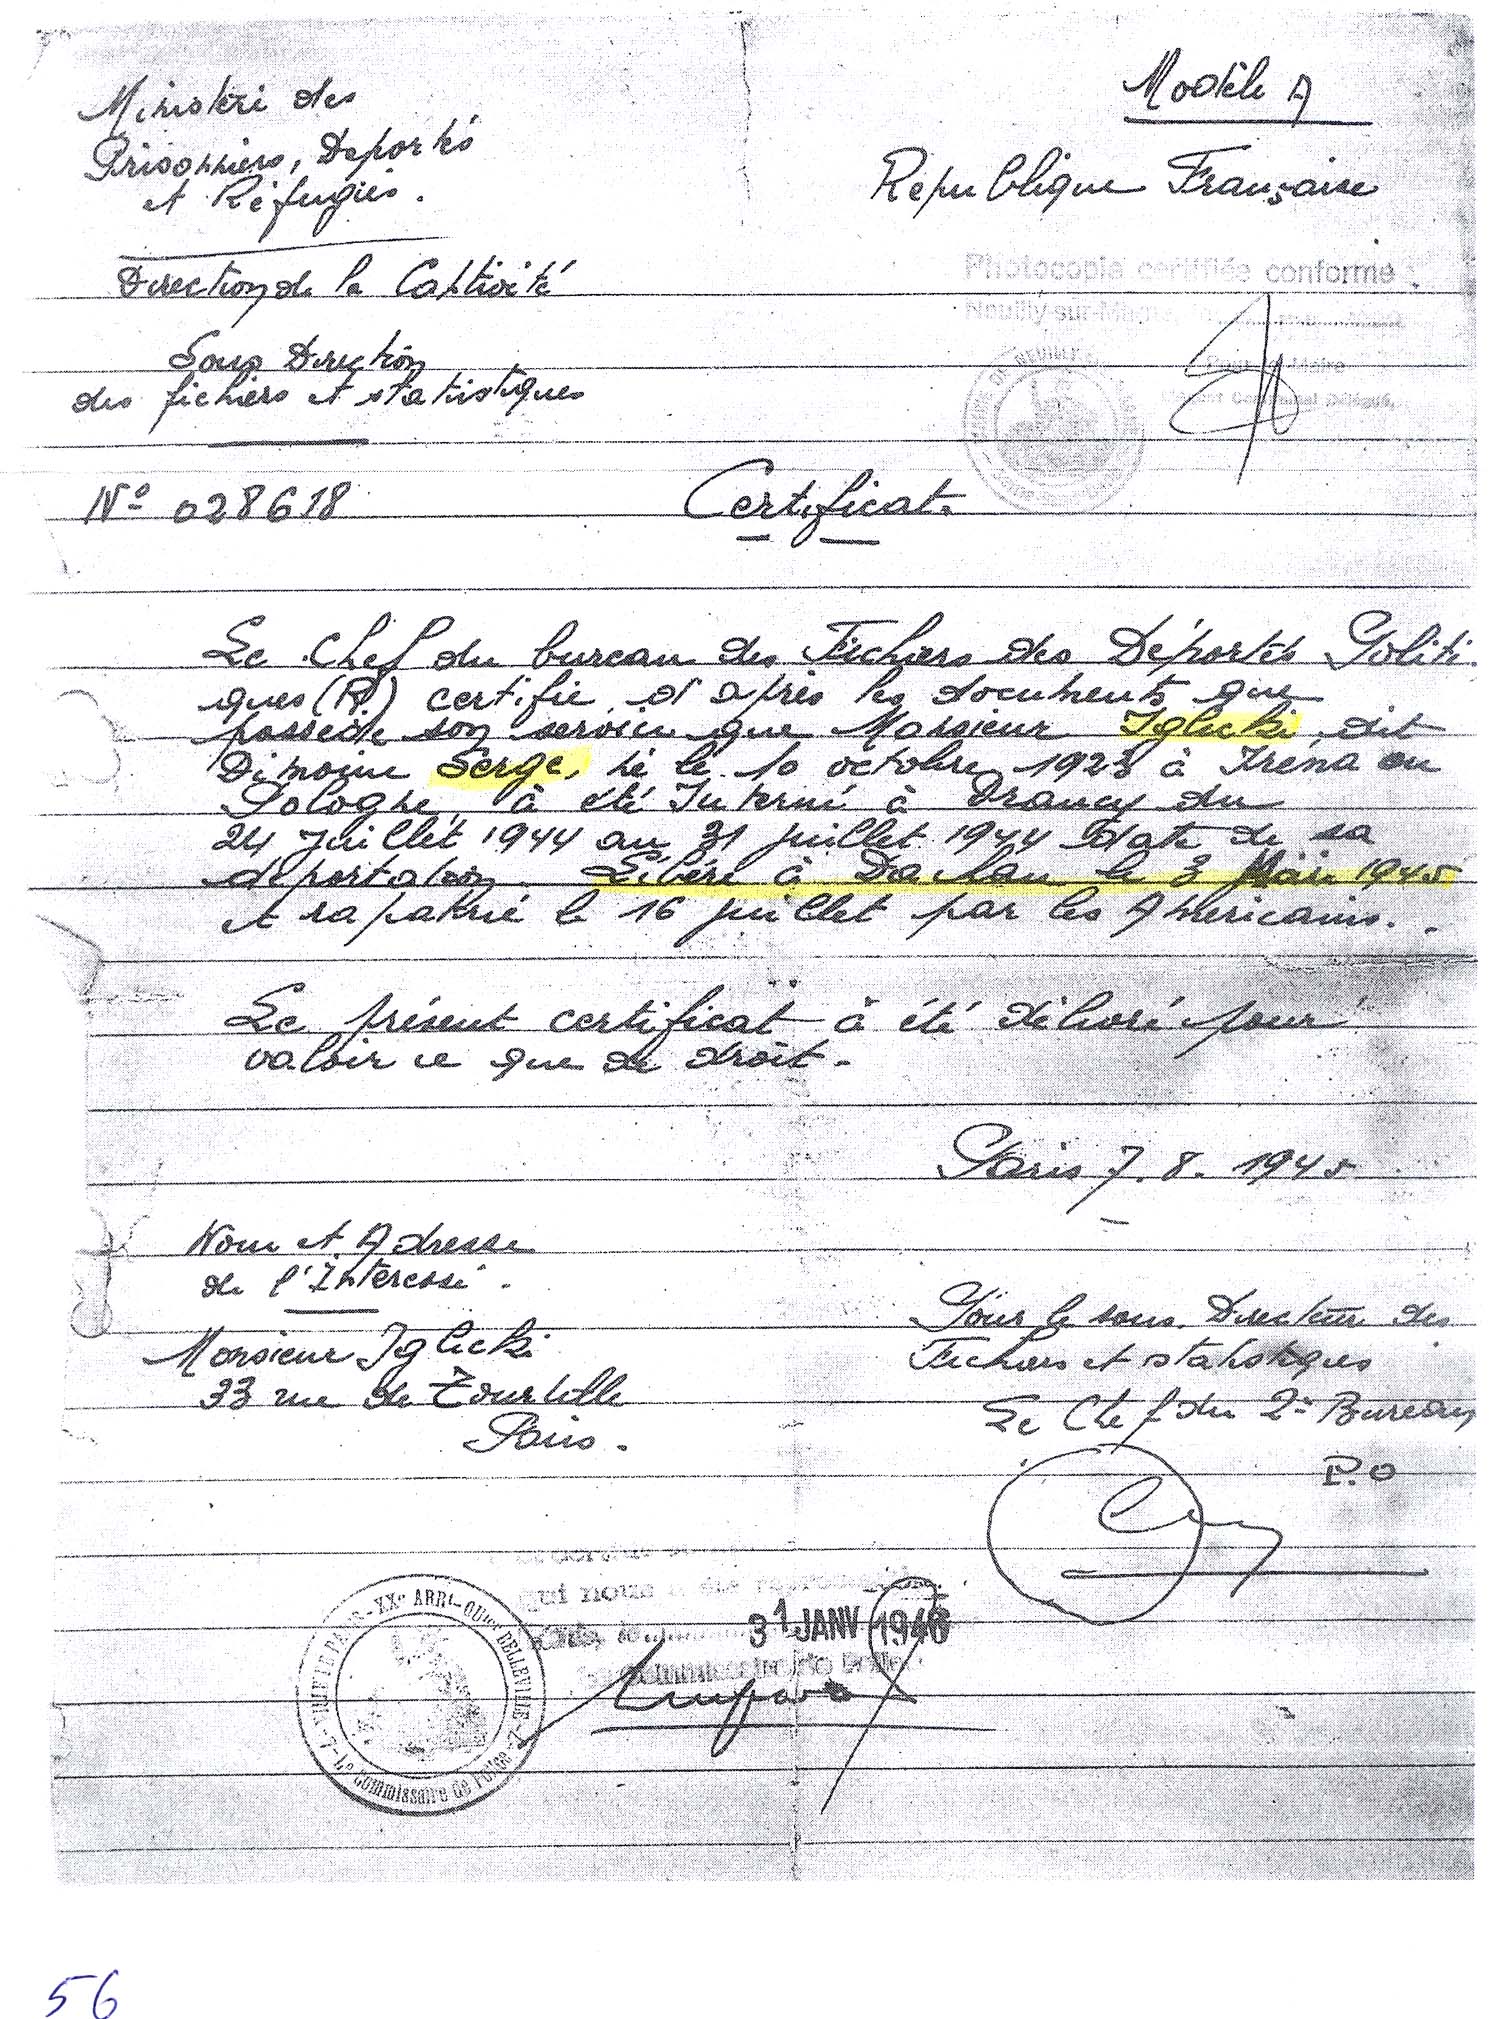 Modèle A
Ministère des
Prisonniers, Déportés
et Réfugiés.
République Française
Direction de la Captivité
Photocopie certifiée conforme
Neuilly-sur-Marne,
Sous Direction
des fichiers et statistiques
Pour le Maire
N° 028618
Certificat.
Le Chef du bureau des Fichiers des Déportés Politi
ques (R) certifie, d'après les documents que
possède son service que Monsieur Iglicki, dit
Dimoine Serge, né le 10 octobre 1923 à Iréna en
Pologne, à été Interné à Drancy du
24 Juillet 1944 au 31 juillet 1944 date de sa
déportation. Libéré à Dachau le 3 Mai 1945
et rapatrié le 16 juillet par les Américains.
Le présent certificat à été délivré pour
valoir ce que de droit.
Paris 7.8.1945
Nom et Adresse
de l'Intéressé.
Monsieur Iglicki
33 rue de Tourtille
Paris.
Pour le sous. Directeur des
Fichiers et statistiques
Le Chef du 2e Bureau
P.O
qui nous a été
31 JANV 1946
XXe ARRt - QUier BELLEVILLE
Le Commissaire de Police
56